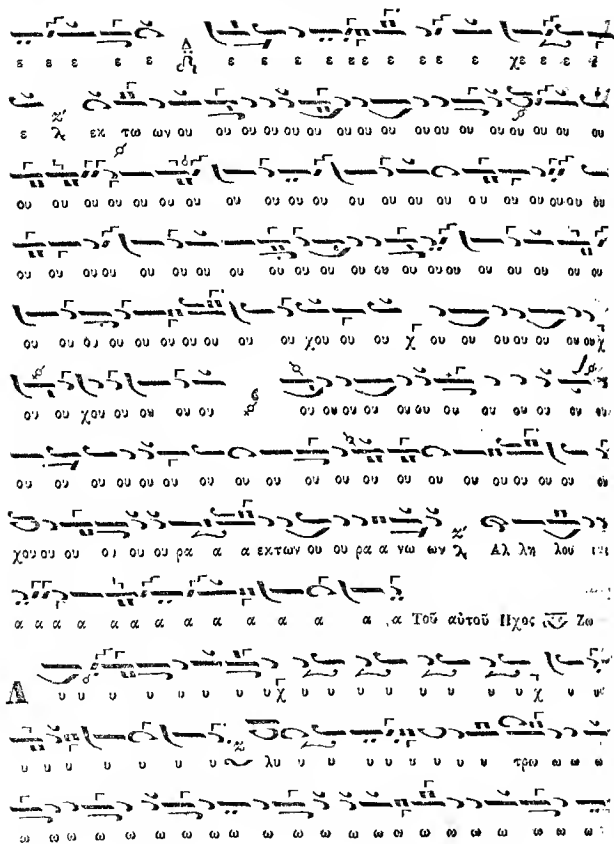 ε ε ε ε ε ε ε ε ε ε ε χε ε ε ε
ε λ εκ τω ων ου ου ου ου ου ου ου ου ου ου ου ου ου ου ου
ου ου ου ου ου ου ου ου ου ου ου ου ου ου ου ου ου ου ου ου
ου ου ου ου ου ου ου ου ου ου ου ου ου ου ου ου ου ου ου ου
ου ου ου ου ου ου ου ου ου ου χου ου ου χ ου ου ου ου ου ου ου χ
ου ου χου ου ου ου ου ου ου ου ου ου ου ου ου ου ου ου
ου ου ου ου ου ου ου ου ου ου ου ου ου ου ου ου ου ου
χου ου ου ου ου ου ρα α α εκτων ου ου ρα α νω ων λ Αλ λη λου
α α α α α α α α α α α α α α Τοῦ αὐτοῦ Ηχος Ζω
Λ υ υ υ υ υ υ υ υ χ υ υ υ υ υ υ υ υ χ υ υ
υ υ υ υ υ υ υ λυ υ υ υ υ υ υ υ υ υ τρω ω ω ω
ω ω ω ω ω ω ω ω ω ω ω ω ω ω ω ω ω ω ω ω